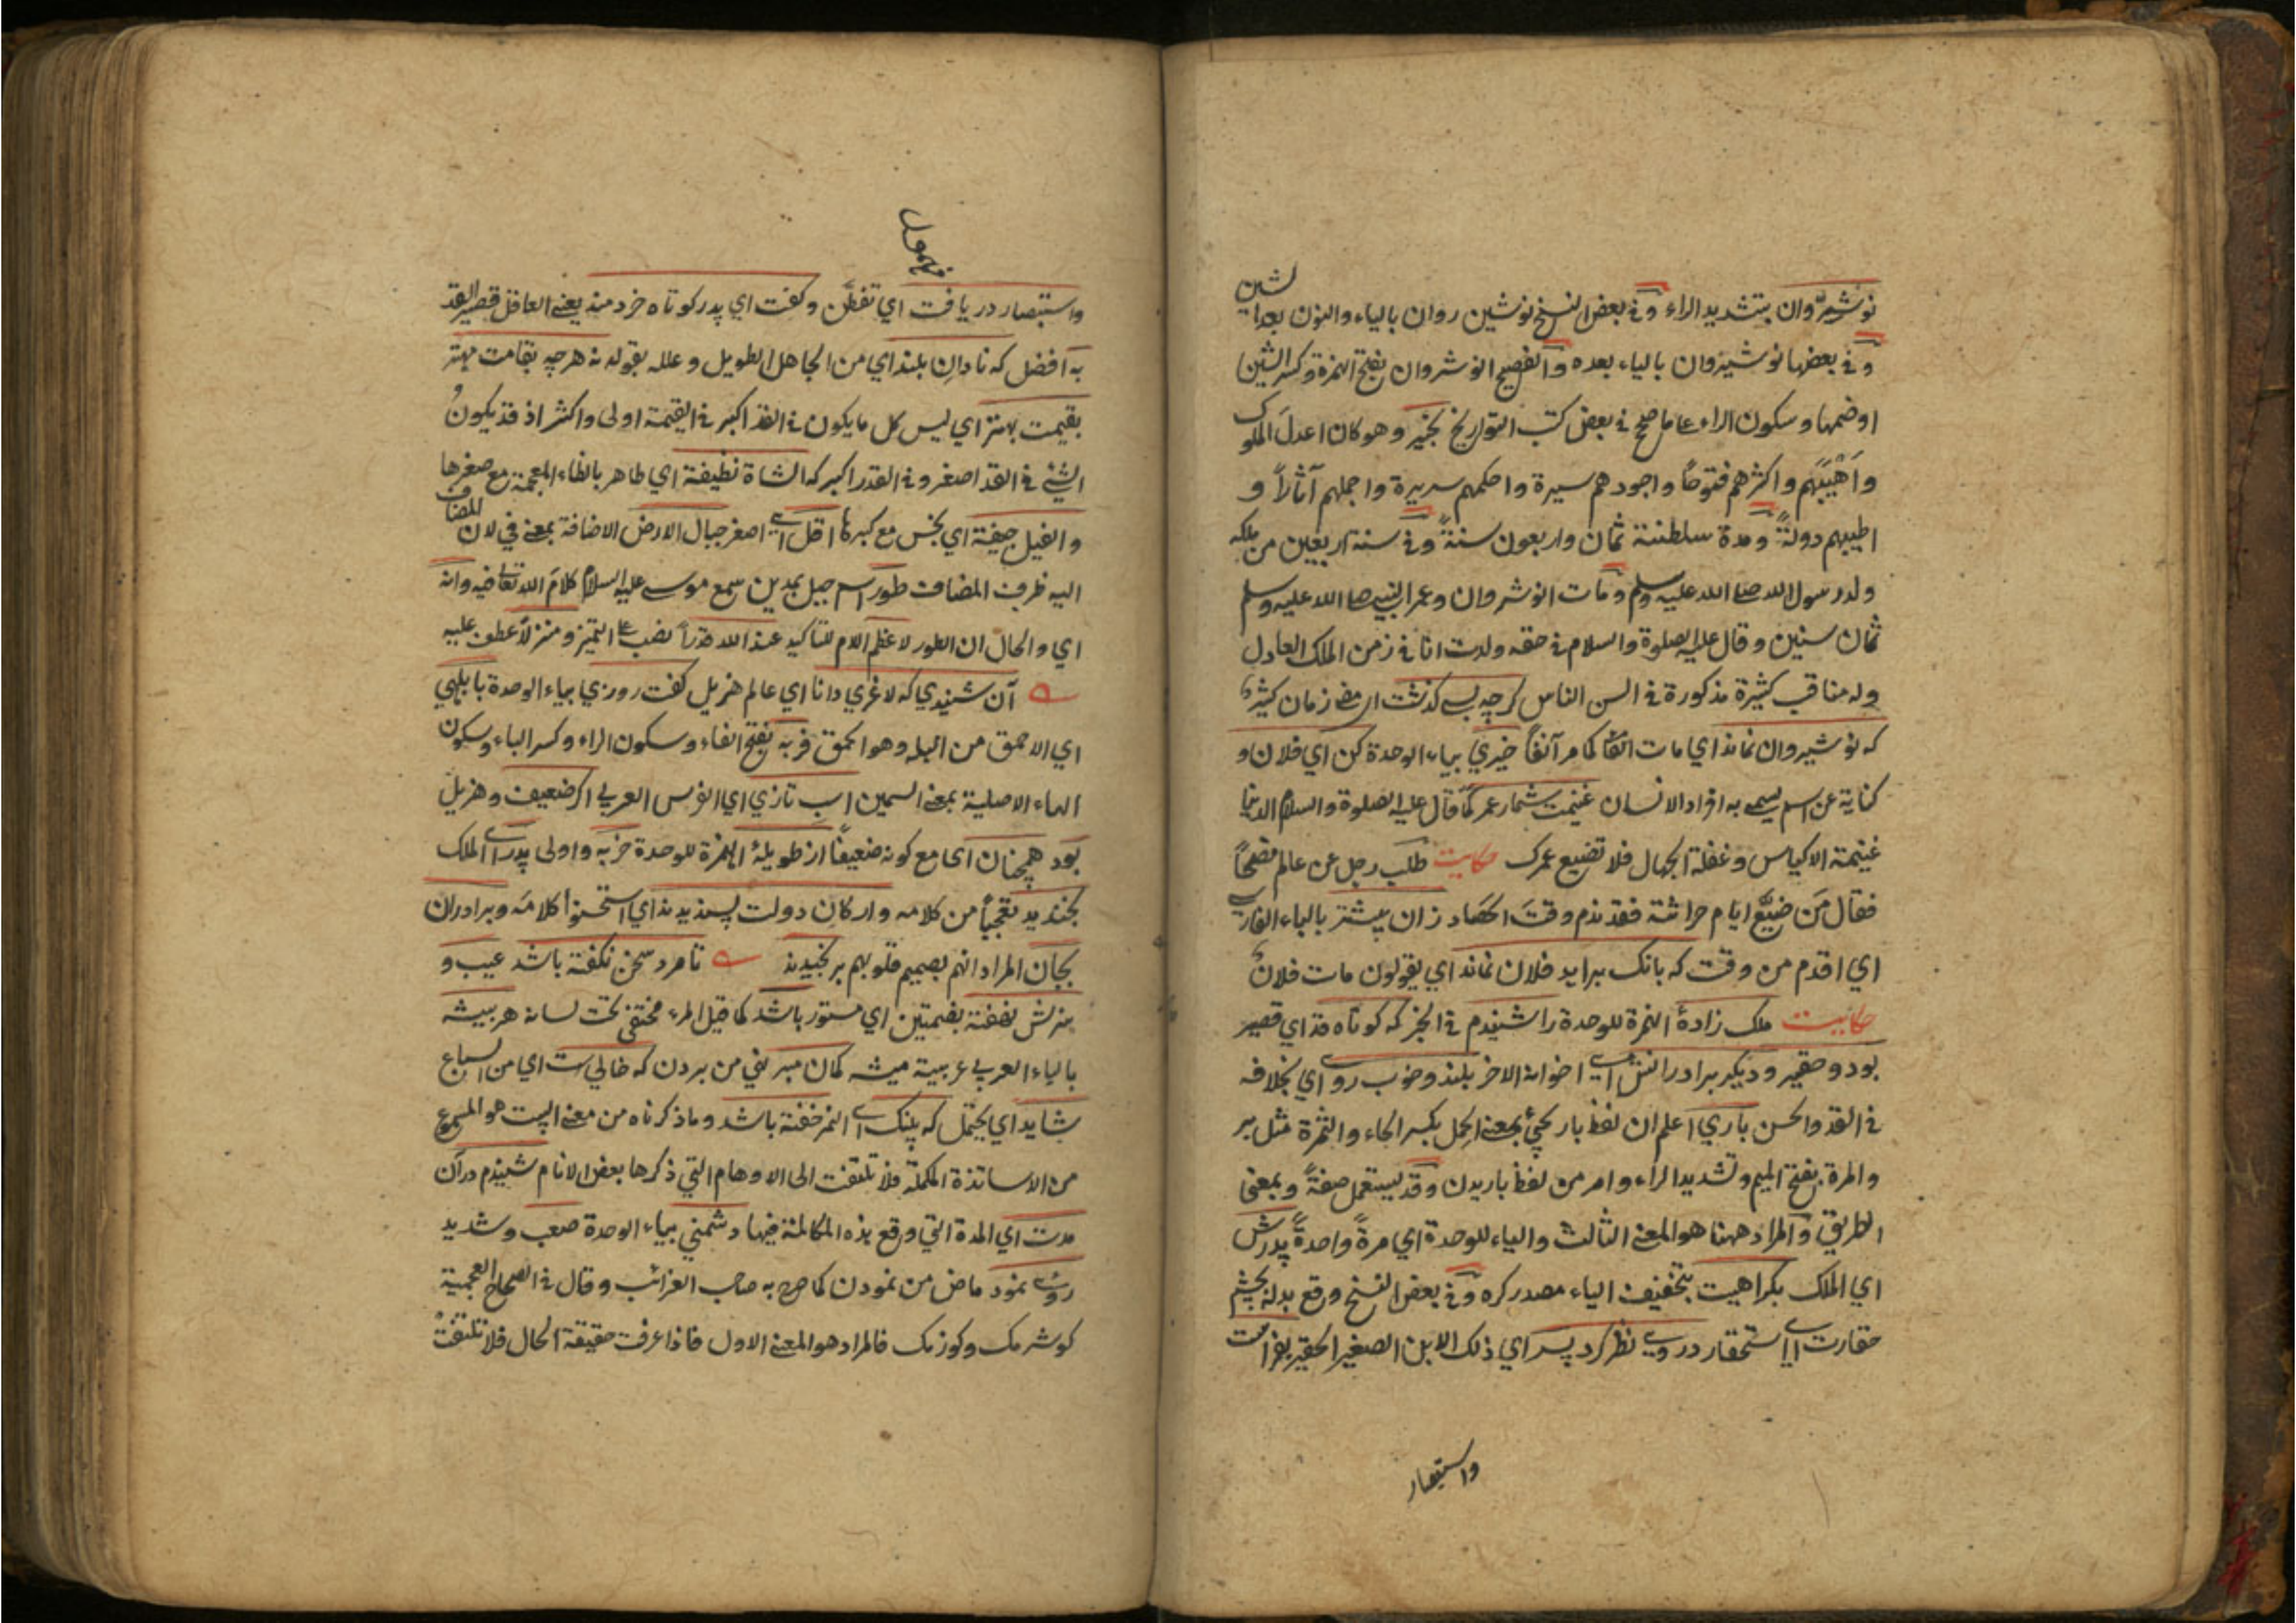 نوشيرّوان بتشديد الراء وفي بعض النسخ نوشين روان بالياء والنون بعد الشين
وفي بعضها نوشيروان بالياء بعده والفصيح انوشروان بفتح الهمزة وكسر الشين
اوضمها وسكون الراء على ما صحح في بعض كتب التواريخ بخير وهو كان اعدل الملوك
وَاَهْيَبَهم واكثرهم فتوحًا واجودهم سيرة واحكمهم سريرة واجملهم آثارًا و
اطيبهم دولةً ومدة سلطنته ثمان واربعون سنةً وفي سنة اربعين من ملكه
ولد رسول الله صلى الله عليه وسلم ومات انوشروان وعمر النبي صلى الله عليه وسلم
ثمان سنين وقال عليه الصلوة والسلام في حقه ولدت انا في زمن الملك العادل
وله مناقب كثيرة مذكورة في السن الناس كرچه بسى كذشت اى مضى زمان كثير
كه نوشيروان نماند اي مات اتفاقا كما مر آنفاً خيري بياء الوحدة كن اي فلان و
كناية عن اسم يسمى به افراد الانسان غنيمت شمار عمر كما قال عليه الصلوة والسلام الدنيا
غنيمة الاكياس وغفلة الجهال فلا تضيع عمرك حكايت طلب رجل عن عالم نصحًا
فقال مَن ضيّع ايام حراثته فقد ندم وقتَ الحصاد زان پيشتر بالباء الفارسي
اي اقدم من وقت كه بانك برايد فلان نماند اي يقولون مات فلانٌ
حكايت ملك زادهٔ الهمزة للوحدة را شنيدم في الخبر كه كوتاه قد اي قصير
بود وحقير وديكر برادرانش اى اخوانه الاخر بلند وخوب رو اي بخلافه
في القد والحسن باري اعلم ان لفظ بار يجئ بمعنى الحمل بكسر الحاء والثمرة مثل بر
والمرة بفتح الميم وتشديد الراء وامر من لفظ باريدن وقد يستعمل صفةً وبمعنى
الطريق والمراد ههنا هو المعنى الثالث والياء للوحدة اي مرةً واحدةً پدرش
اي الملك بكراهيت بتخفيف الياء مصدر كره وفي بعض النسخ وقع بدله بچشم
حقارت اى استحقار در وى نظر كرد پسر اي ذلك الابن الصغير الحقير بفراست
واستبصار
واستبصار دريافت اي تفطّن وكفت اي پدر كوتاه خردمند يعني العاقل قصير القد
به افضل كه نادانِ بلند اي من الجاهل الطويل وعلله بقوله نه هرچه بقامت مهتر
بقيمت بهتر اي ليس كل ما يكون في القد اكبر في القيمة اولى واكثر اذ قد يكونُ
الشئ في القد اصغر وفي القدر اكبر كه الشاة نظيفة اي طاهر بالظاء المعجمة مع صغرها
والفيل جيفة اي نجس مع كبرها اقل اى اصغر جبال الارض الاضافة بمعنى في لان المضاف
اليه ظرف المضاف طور اسم جبل بمدين سمع موسى عليه السلام كلامَ الله تعالى فيه وانه
اي والحال ان الطور لاعظم اللام للتأكيد عند الله قدراً نصب على التميز ومنزلاً عطف عليه
آن شنيدي كه لاغري دانا اي عالم هزيل كفت روزي بياء الوحدة بابلهي
اي الاحمق من البله وهو الحمق فربه بفتح الفاء وسكون الراء وكسر الباء وسكون
الهاء الاصلية بمعنى السمين اسب تازي اي الفرس العربي اكر ضعيف وهزيل
بود همچنان اى مع كونه ضعيفًا از طويلهٔ الهمزة للوحدة خر به واولى پدر اى الملك
بخنديد تعجبًا من كلامه واركان دولت پسنديدند اي استحسنوا كلامه وبرادران
بجان المراد انهم بصميم قلوبهم برنجيدند تا مرد سخن نكفته باشد عيب و
هنرش نهفته بضمتين اي مستور باشد كما قيل المرء مختفى تحت لسانه هر بيشه
بالباء العربي عربية ميشه كمان مبر نهي من بردن كه خاليست اي من السباع
شايد اي يحتمل كه پلنك اى النمر خفته باشد وما ذكرناه من معنى البيت هو المسموع
من الاساتذة الكملة فلا تلتفت الى الاوهام التي ذكرها بعض الانام شنيدم درآن
مدت اي المدة التي وقع هذه المكالمة فيها دشمني بياء الوحدة صعب وشديد
روى نمود ماض من نمودن كما صرح به صاحب الغرائب وقال في الصحاح العجمية
كوشرمك وكوزمك فالمراد هو المعنى الاول فاذا عرفت حقيقة الحال فلا تلتفتْ